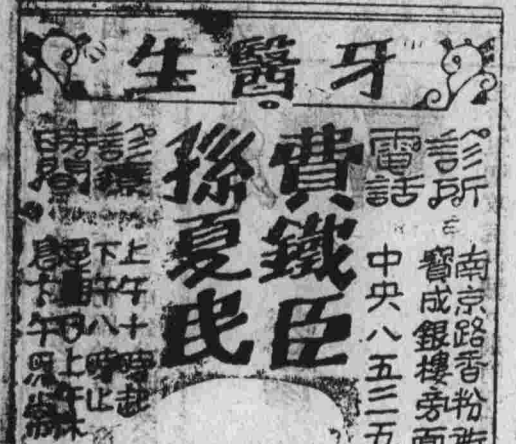 牙醫生
診所
南京路香粉
寶成銀樓旁
電話
中央八五三五
費鐵臣
孫夏民
診療時間
上午十時起
下午八時止
星期日上午休